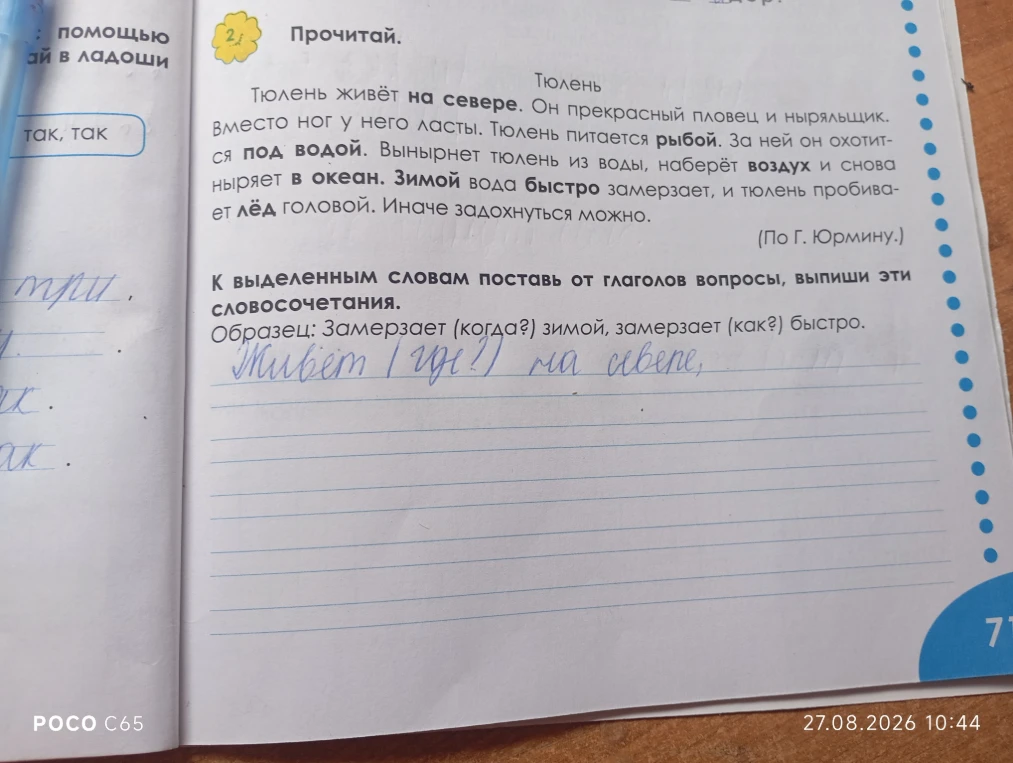 помощью
ай в ладоши
так, так
три.
ак.
ак.
2,
Прочитай.
Тюлень
Тюлень живёт на севере. Он прекрасный пловец и ныряльщик.
Вместо ног у него ласты. Тюлень питается рыбой. За ней он охотит-
ся под водой. Вынырнет тюлень из воды, наберёт воздух и снова
ныряет в океан. Зимой вода быстро замерзает, и тюлень пробива-
ет лёд головой. Иначе задохнуться можно.
(По Г. Юрмину.)
К выделенным словам поставь от глаголов вопросы, выпиши эти
словосочетания.
Образец: Замерзает (когда?) зимой, замерзает (как?) быстро.
Живёт (где?) на севере,
POCO C65
27.08.2026 10:44